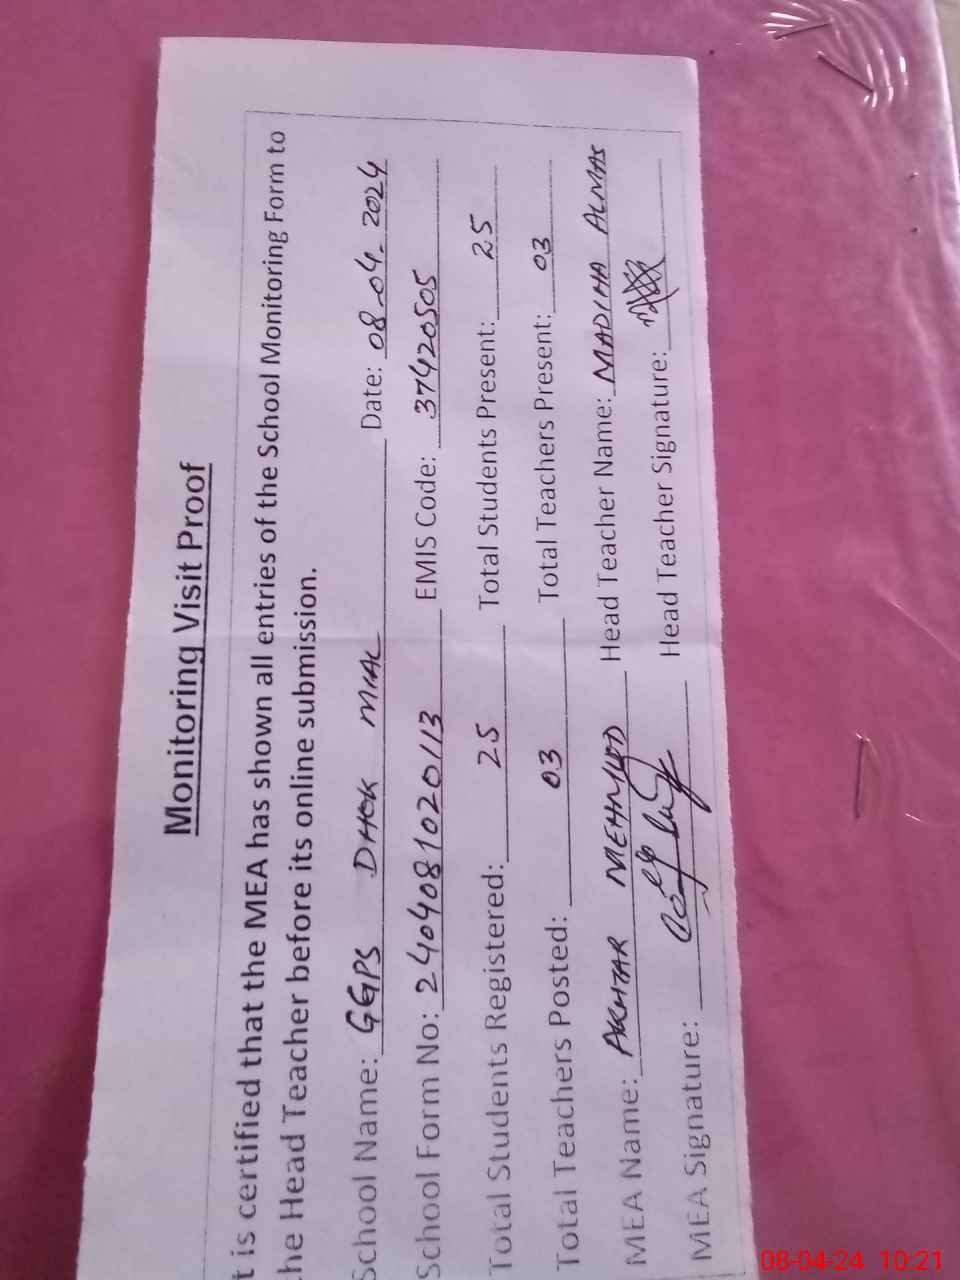 Monitoring Visit Proof
t is certified that the MEA has shown all entries of the School Monitoring Form to
he Head Teacher before its online submission.
School Name: GGPS DHOK MIAL Date: 08-04-2024
School Form No: 2404081020113 EMIS Code: 37420505
Total Students Registered: 25 Total Students Present: 25
Total Teachers Posted: 03 Total Teachers Present: 03
MEA Name: AKHTAR MEHMOOD Head Teacher Name: MADIHA ALMAS
MEA Signature: Head Teacher Signature:
08-04-24 10:21